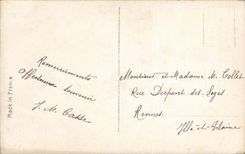 Remerciements
Affectueux souvenir
J. M.
Made in France
Monsieur et Madame M. Collet
Rue Dupont des Loges
Rennes
Ille-et-Vilaine